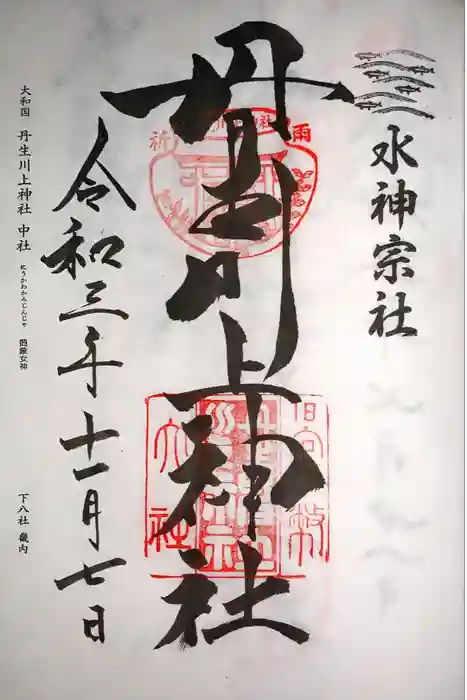 水神宗社
丹生川上神社
祈 雨
官幣大社
令和三年十一月七日
大和国 丹生川上神社 中社 にうかわかみじんじゃ 罔象女神
下八社 畿内